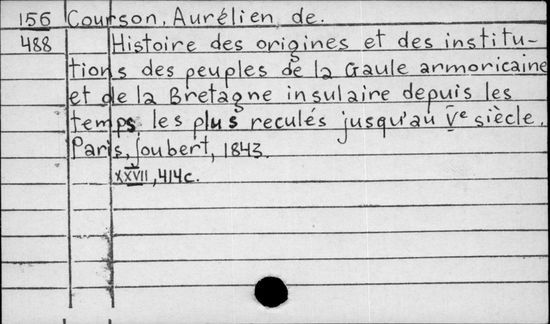 156 Courson, Aurélien de.
488 Histoire des origines et des institu-
tions des peuples de la Gaule armoricaine
et de la Bretagne insulaire depuis les
temps les plus reculés jusqu'au Ve siècle.
Paris, Joubert, 1843.
XXVII, 414c.